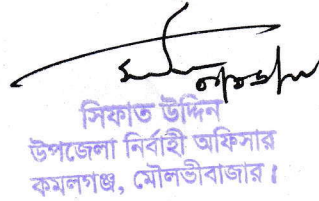 সিফাত উদ্দিন
উপজেলা নির্বাহী অফিসার
কমলগঞ্জ, মৌলভীবাজার।